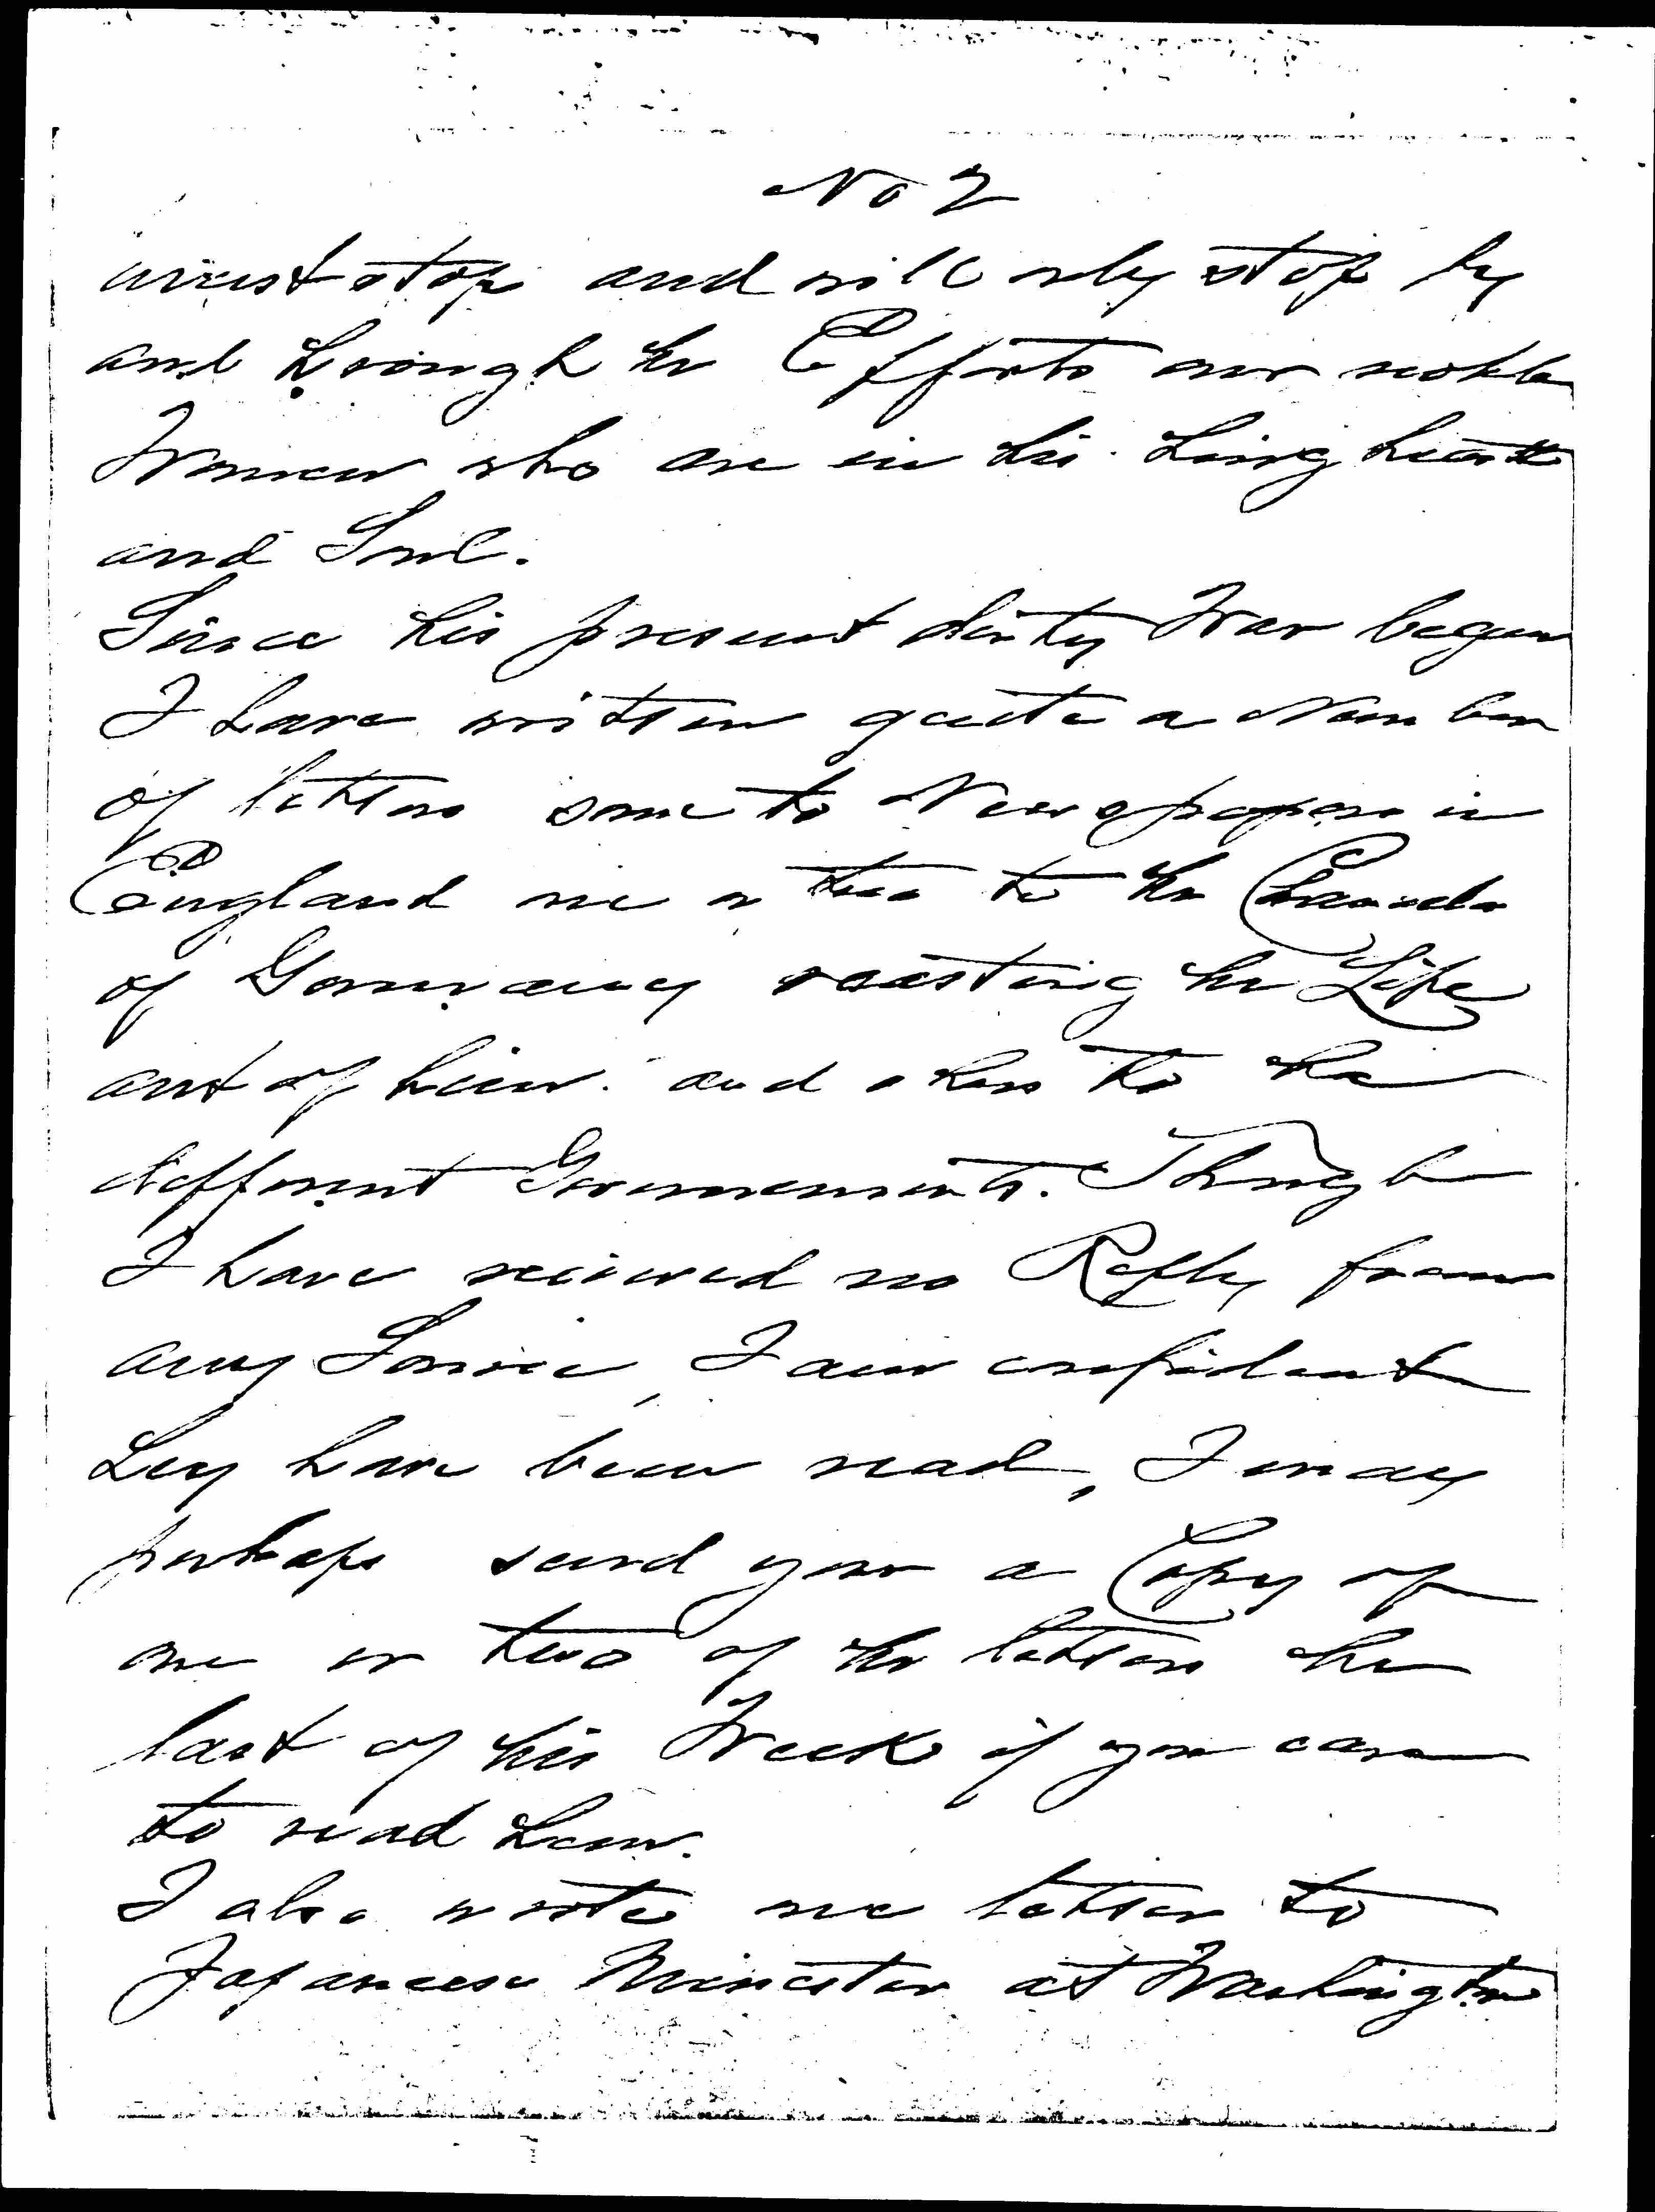 No 2
must stop and will only stop by
and through the Efforts our noble
Women who are in this thing heart
and Soul.
Since this present dirty War began
I have written quite a Number
of letters some to Newspapers in
England one or two to the
of Germany roasting the Life
out of him. and others to the
different Governments. Though
I have recieved no Reply from
any Source, I am confident
they have been read, I may
perhaps send you a Copy of
one or two of the letters the
last of this Week if you care
to read them.
I also wrote one letter to
Japanese Minister at Washington